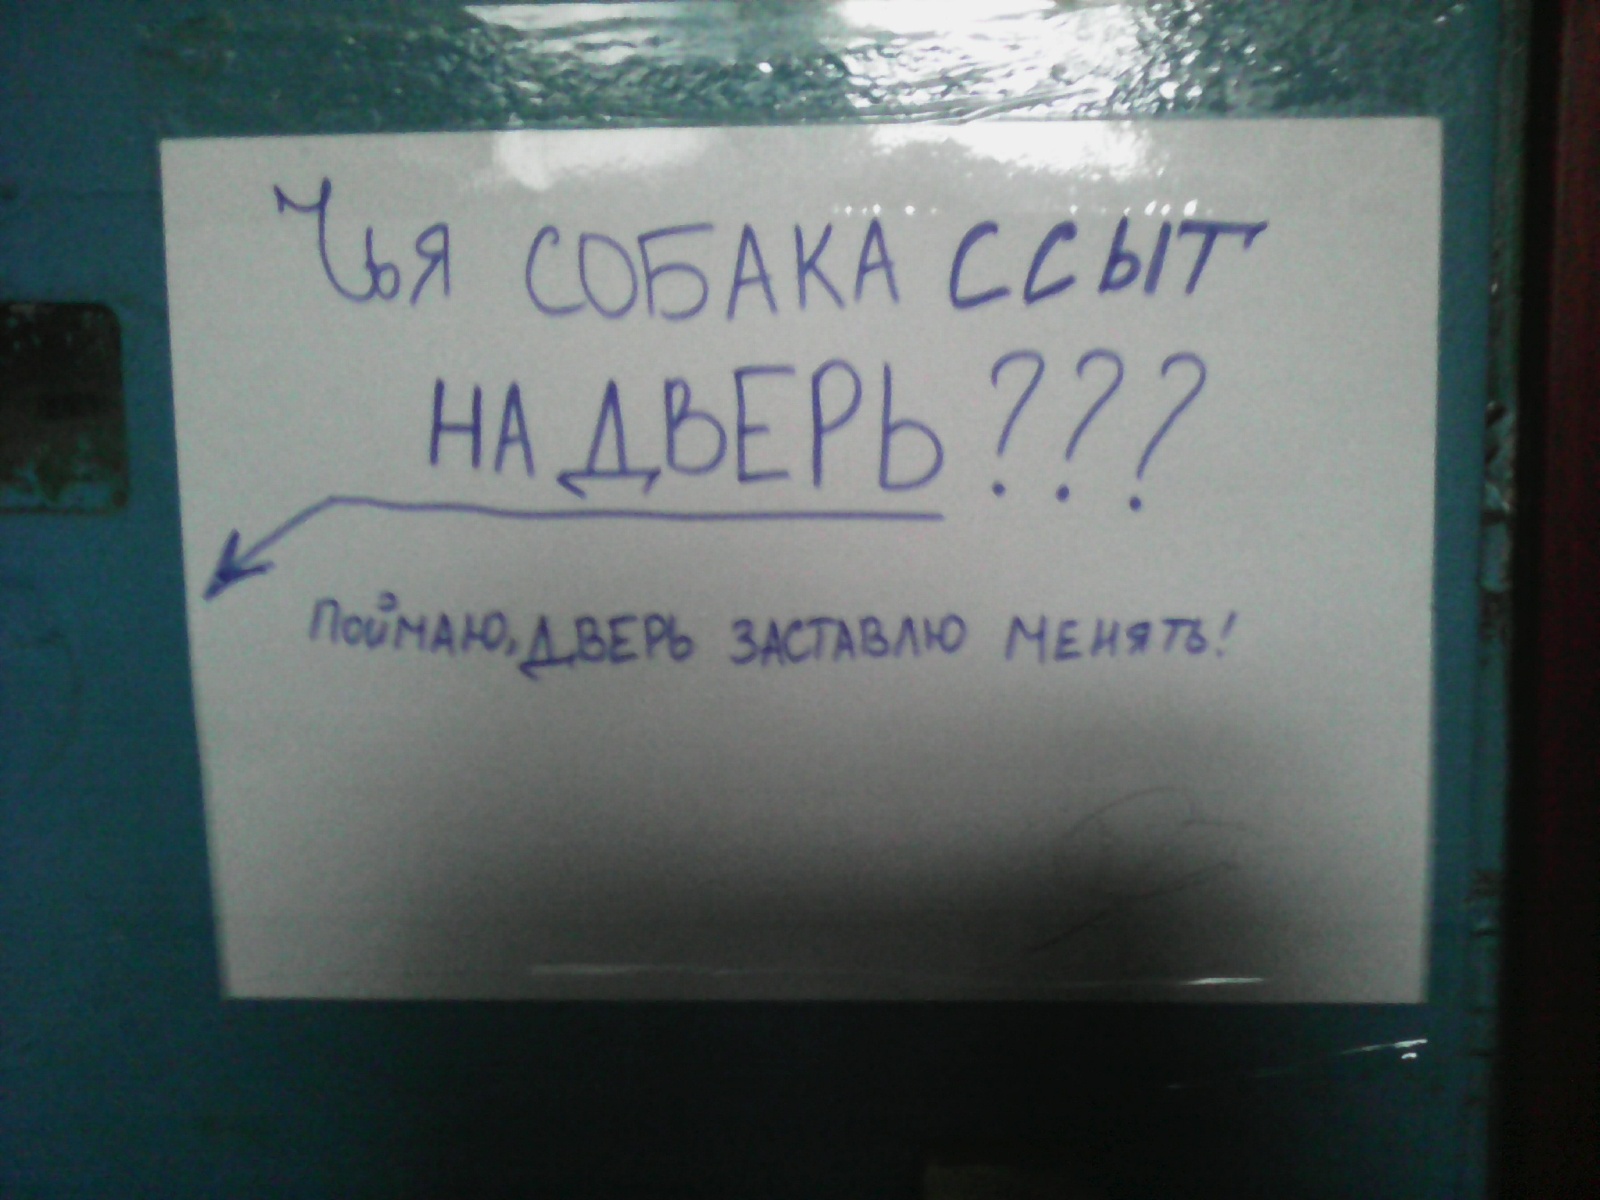 Чья СОБАКА ССЫТ
НА ДВЕРЬ???
ПОЙМАЮ, ДВЕРЬ ЗАСТАВЛЮ МЕНЯТЬ!